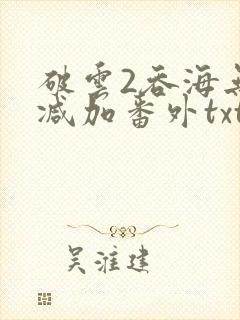 破云2吞海无
减加番外txt
吴淮建